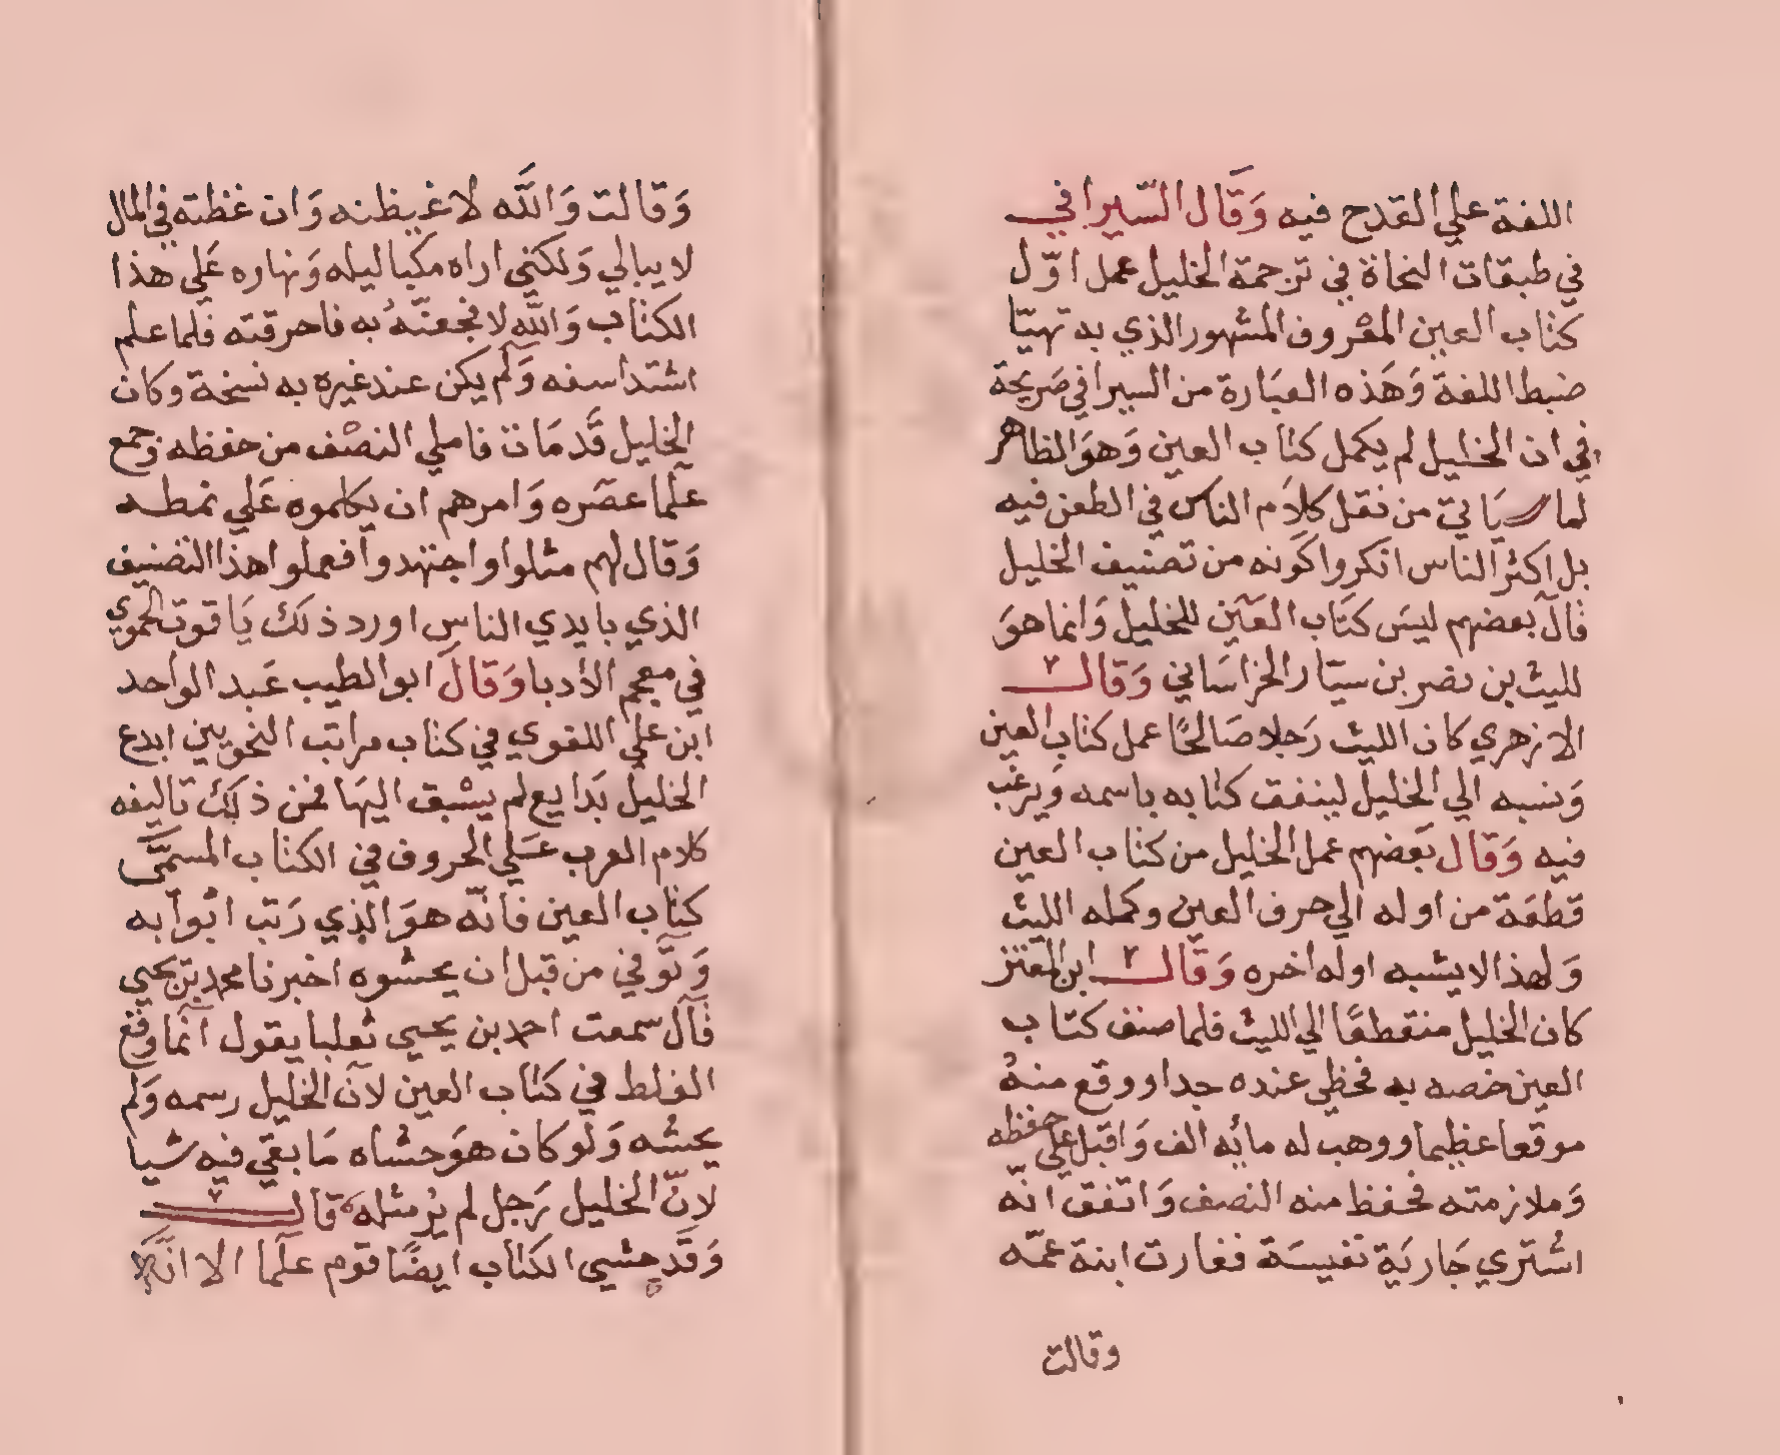 اللغة علي القدح فيه وَقَال السّيرافي
في طبقات النحاة في ترجمة الخليل عمل اوّل
كتاب العين المعروف المشهور الذي به تهيّا
ضبط اللغة وَهَذه العبَارة من السيرافي صَريحة
في ان الخليل لم يكمل كتاب العين وَهوَ الظاهر
لما سيَاتي من نقل كلاَم الناس في الطعن فيه
بل اكثر الناس انكروا كَونه من تصنيف الخليل
قال بعضهم ليسَ كتَاب العَين للخليل وَانما هوَ
لليث بن نصر بن سيّار الخراسَاني وَقال
الازهري كان الليث رَجلا صَالحًا عمل كتاب العين
وَنسبه الي الخليل لينفق كتابه باسمه وَيرغب
فيه وَقَال بَعضهم عمل الخليل من كتاب العين
قطعَة من اوله الي حرف العين وكمله الليث
وَلهذا لا يشبه اوله اخره وَقَال ابن المعتز
كان الخليل منقطعًا الي الليث فلما صنف كتاب
العين خصه به فحظي عنده جدا ووقع منهُ
موقعا عظيما ووهب له مائه الف وَاقبل علي حفظه
وَملازمته فحفظ منه النصف وَاتفق انّه
اشترَي جَاريَة نفيسَة فغارت ابنة عمّه
وقالت
وَقالت وَاللَّه لاغيظنه وَان غظته في المال
لا يبالي وَلكني اراه مكبا ليله وَنهاره عَلي هذا
الكتاب وَاللَّه لافجعنّهُ به فاحرقته فلما علم
اشتد اسفه وَلم يكن عند غيره به نسخة وكان
الخليل قَد مَات فاملي النصْف من حفظه وجمع
علَما عصَره وَامرهم ان يكملوه عَلي نمطه
وَقال لهم مثلوا واجتهدوا فعملوا هذا التصنيف
الذي بايدي الناس اورد ذلك يَاقوت الحموي
في معجم الأدبا وَقَالَ ابو الطيب عَبد الواحد
ابن علي اللغوي في كتاب مراتب النحويين ابدع
الخليل بَدايع لم يسْبق اليهَا فمن ذلك تاليفه
كلام العرب عَلي الحروف في الكتاب المسمَّى
كتاب العين فانّه هوَ الذي رَتب ابْوابه
وَتوَفي من قبل ان يحشوه اخبرنا محمد بن يحيي
قال سمعت احمد بن يحيي ثعلبا يقول انما وقع
الغلط في كتاب العين لان الخليل رسمه وَلم
يحشه وَلو كان هوَ حشاه مَا بقي فيه شيا
لانّ الخليل رَجل لم يُر مثله قال
وَقَد حشي الكتاب ايضًا قوم علَما الا انّه